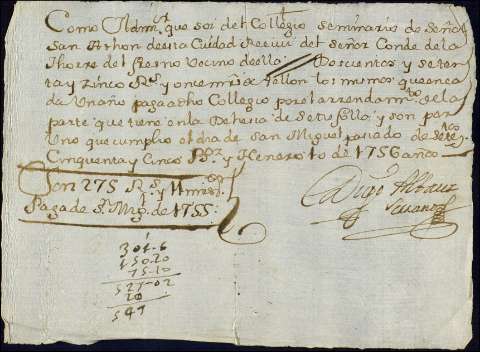 Como Admor. que soi del Collegio seminario de Señor
San Athon desta Ciudad Recivi del señor Conde de la
Thorre del fresno Vecino de ella Doscuentos y seten
ta y zinco Rs. y once mrs. de Vellon los mismos que en ca
da Un año paga a dho Collegio por el arrendamto. de la
parte que tiene en la Dehesa de
y son por
Uno que cumplio el dia de san Miguel pasado de setecos.
Cinquenta y Cinco y Henero 10 de 1756 años
Son 275 Rs. y 11 mrs.
Paga de Sn. Migl. de 1755
Diego
301-6
150-20
75-10
527-02
20
547